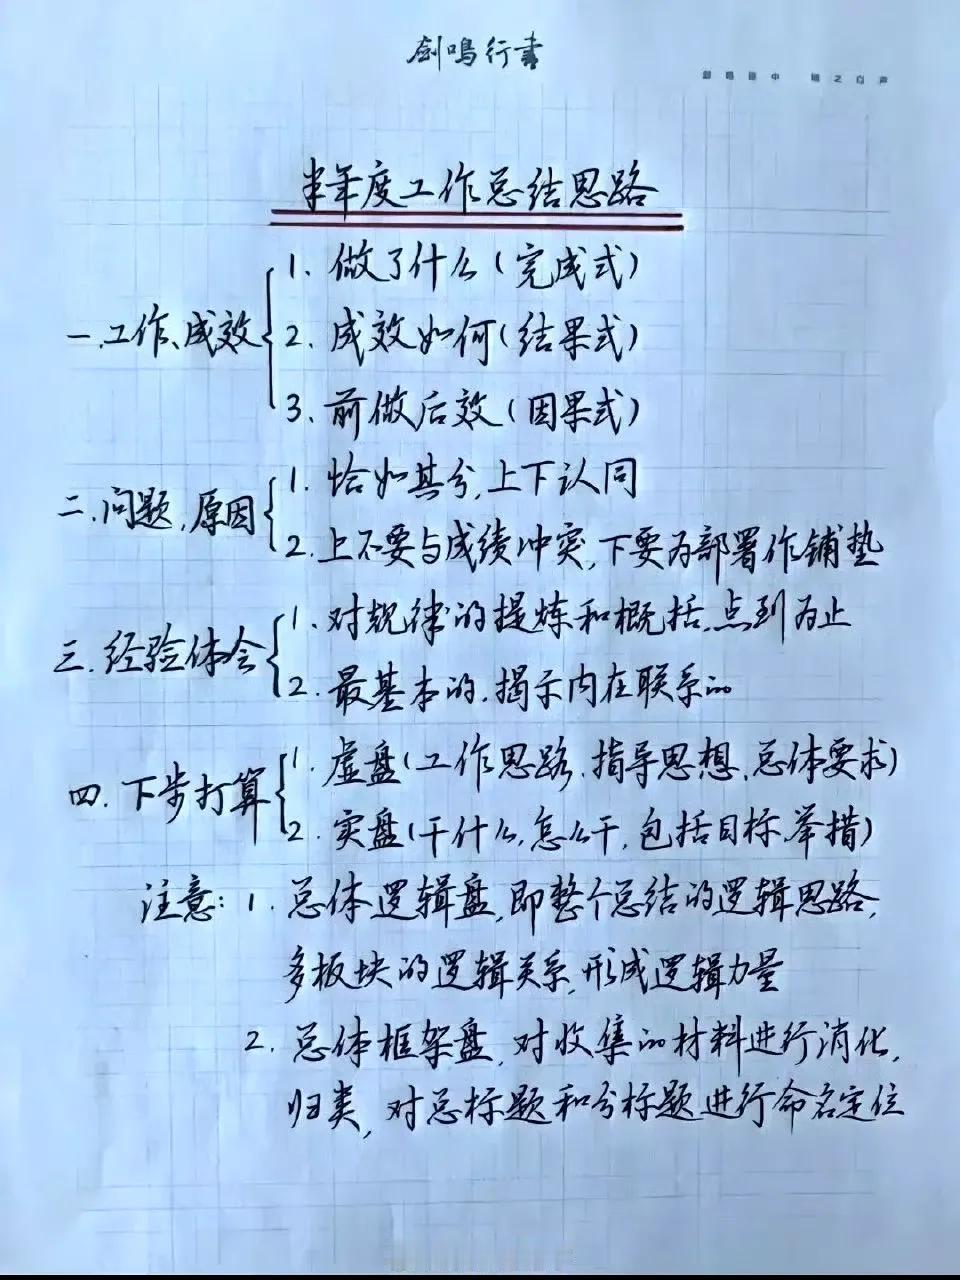 剑鸣行书
半年度工作总结思路
一.工作、成效
1. 做了什么(完成式)
2. 成效如何(结果式)
3. 前做后效(因果式)
二.问题.原因
1. 恰如其分,上下认同
2. 上不要与成绩冲突,下要为部署作铺垫
三.经验体会
1. 对规律的提炼和概括,点到为止
2. 最基本的.揭示内在联系的
四.下步打算
1. 虚盘(工作思路.指导思想.总体要求)
2. 实盘(干什么,怎么干,包括目标.举措)
注意: 1. 总体逻辑盘,即整个总结的逻辑思路,
多板块的逻辑关系,形成逻辑力量
2. 总体框架盘,对收集的材料进行消化,
归类,对总标题和分标题进行命名定位